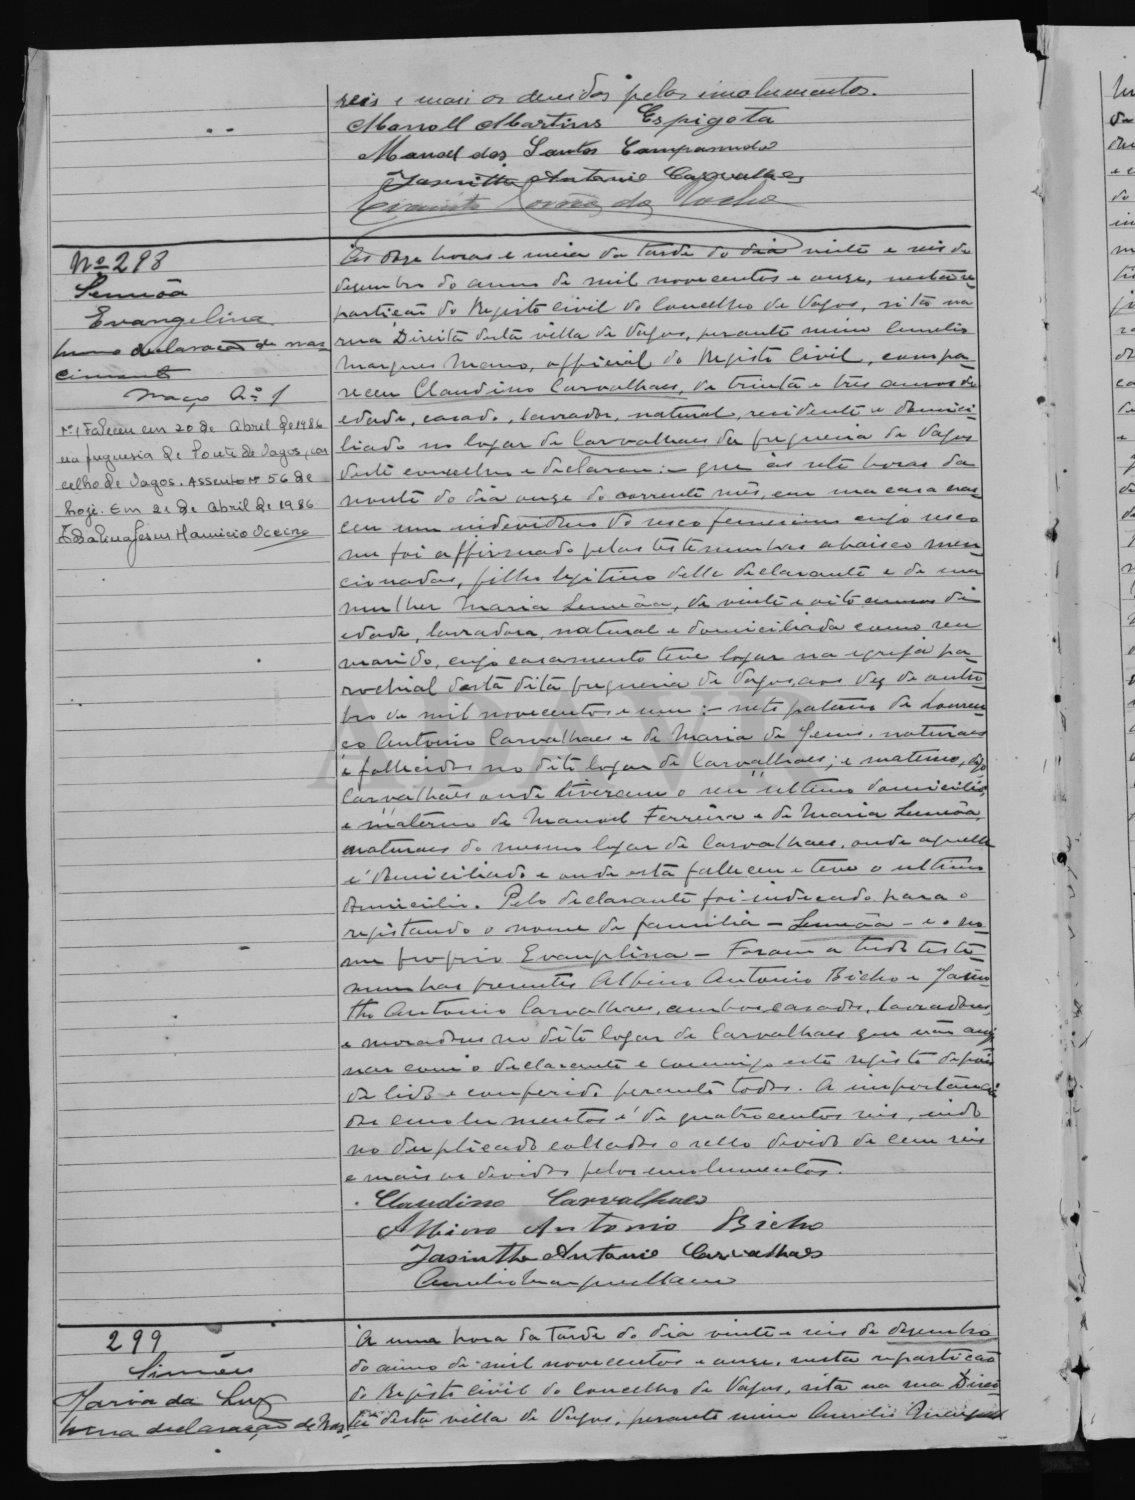 reis e mais os devidos pelos emolumentos.
Manoel Martins Espigota
Manoel dos Santos
Jasintho Antonio Carvalhaes
da Rocha
Nº 298
Semeôa
Evangelina
uma declaração de nas-
cimento
Maço Nº 1
Nº 1 Faleceu em 20 de Abril de 1986
na freguesia de Ponte de Vagos, con-
celho de Vagos. Assento nº 56 de
hoje. Em 21 de Abril de 1986
Jesus Mauricio
Ás onze horas e meia da tarde do dia vinte e seis de
dezembro do anno de mil novecentos e onze, nesta re-
partição do Registo Civil do Concelho de Vagos, sita na
rua Direita desta villa de Vagos, perante mim Aurelio
Marques Mano, official do Registo Civil, compa-
receu Claudino Carvalhaes, de trinta e três annos de
edade, casado, lavrador, natural, residente e domici-
liado no logar de Carvalhaes da freguesia de Vagos
deste concelho e declarou: – que ás sete horas da
noute do dia onze do corrente mês, em sua casa nas-
ceu um individuo do sexo femenino cujo sexo
me foi affirmado pelas testemunhas abaixo men-
cionadas, filho legitimo delle declarante e de sua
mulher Maria Semeôa, de vinte e oito annos de
edade, lavradora, natural e domiciliada como seu
marido, cujo casamento teve logar na egreja pa-
rochial desta dita freguesia de Vagos, aos dez de outu-
bro de mil novecentos e um: – neto paterno de Louren-
ço Antonio Carvalhaes e de Maria de Jesus, naturaes
e fallecidos no dito logar de Carvalhaes, e materno, digo
Carvalhaes onde tiveram o seu ultimo domicilio,
e materno de Manoel Ferreira e de Maria Semeôa,
naturaes do mesmo logar de Carvalhaes, onde aquelle
é domiciliado e onde esta falleceu e teve o ultimo
domicilio. Pelo declarante foi indicado para o
registando o nome de familia – Semeôa – e o no-
me proprio Evangelina – Foram a tudo teste-
munhas presentes Albino Antonio Bicho e Jasin-
tho Antonio Carvalhaes, ambos casados, lavradores,
e moradores no dito logar de Carvalhaes que vão assig-
nar com o declarante e commigo este registo depois
de lido e conferido perante todos. A importância
dos emolumentos é de quatrocentos reis, indo
no duplicado collados o sello devido de cem reis
e mais os devidos pelos emolumentos.
Claudino Carvalhaes
Albino Antonio Bicho
Jasintho Antonio Carvalhaes
Aurelio Marques Mano
299
Simões
Maria da Luz
uma declaração de nas-
Á uma hora da tarde do dia vinte e seis de dezembro
do anno de mil novecentos e onze, nesta repartição
do Registo Civil do Concelho de Vagos, sita na rua Direi-
ta desta villa de Vagos, perante mim Aurelio Marques